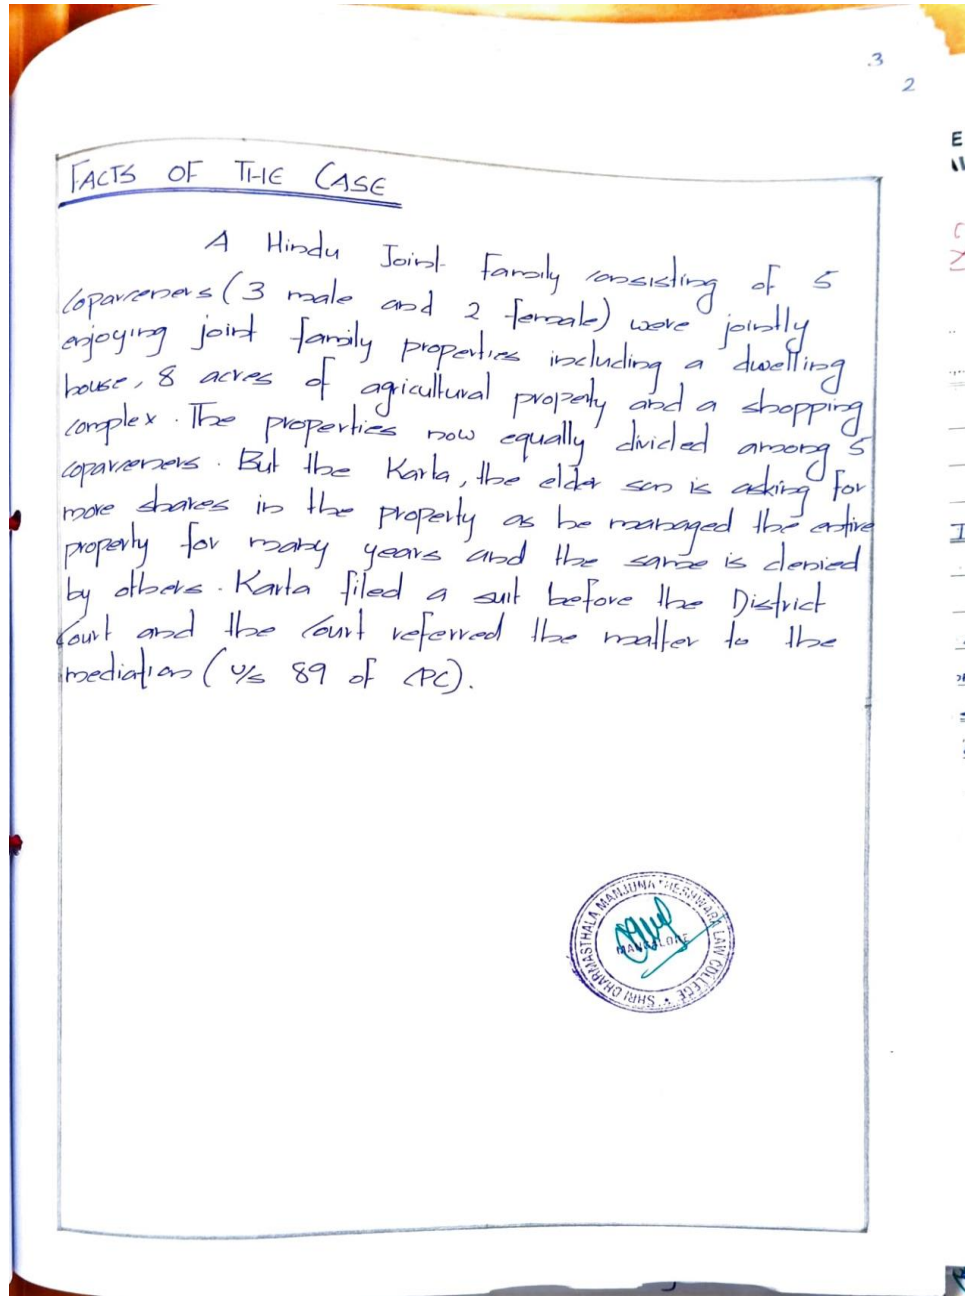 .3
2
FACTS OF THE CASE
A Hindu Joint Family consisting of 5
coparceners (3 male and 2 female) were jointly
enjoying joint family properties including a dwelling
house, 8 acres of agricultural property and a shopping
complex. The properties now equally divided among 5
coparceners. But the Karta, the elder son is asking for
more shares in the property as he managed the entire
property for many years and the same is denied
by others. Karta filed a suit before the District
Court and the Court referred the matter to the
mediation (u/s 89 of CPC).
SHRI DHARMASTHALA MANJUNATHESHWARA LAW COLLEGE
MANGALORE